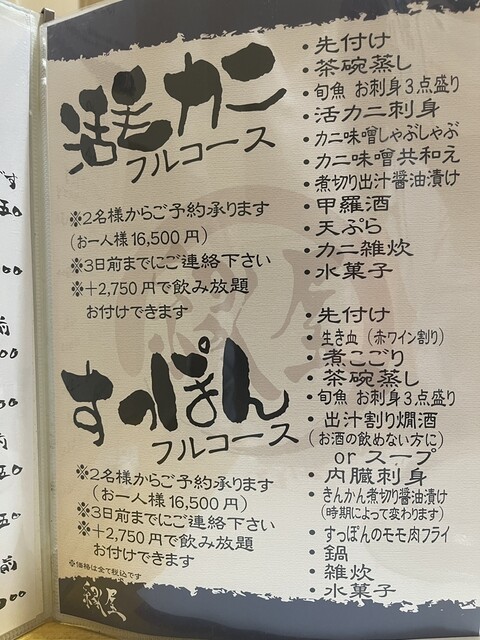 活毛カニ
フルコース
※2名様からご予約承ります
(お一人様16,500円)
※3日前までにご連絡下さい
※+2,750円で飲み放題
お付けできます
・先付け
・茶碗蒸し
・旬魚 お刺身3点盛り
・活カニ刺身
・カニ味噌しゃぶしゃぶ
・カニ味噌共和え
・煮切り出汁醤油漬け
・甲羅酒
・天ぷら
・カニ雑炊
・水菓子
すっぽん
フルコース
※2名様からご予約承ります
(お一人様16,500円)
※3日前までにご連絡下さい
※+2,750円で飲み放題
お付けできます
※価格は全て税込です
・先付け
・生き血(赤ワイン割り)
・煮こごり
・茶碗蒸し
・旬魚 お刺身3点盛り
・出汁割り燗酒
(お酒の飲めない方に)
or スープ
・内臓刺身
・きんかん煮切り醤油漬け
(時期によって変わります)
・すっぽんのモモ肉フライ
・鍋
・雑炊
・水菓子